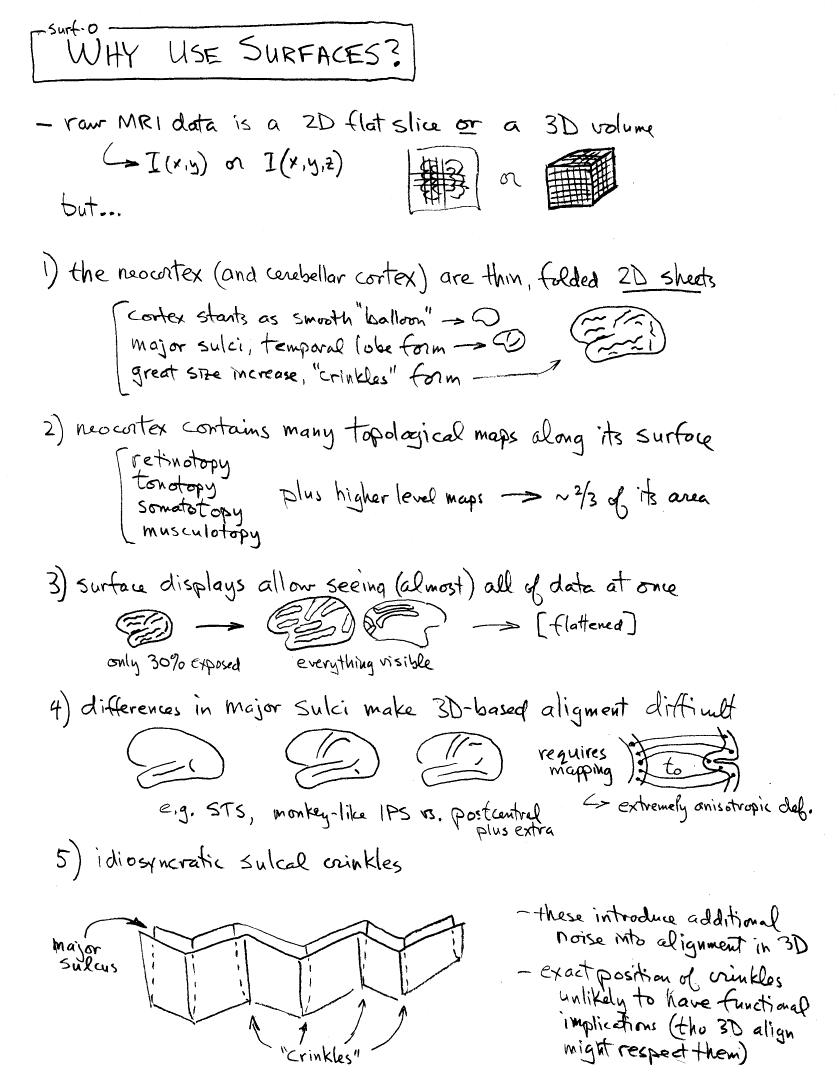 surf-0
WHY USE SURFACES?
- raw MRI data is a 2D flat slice or a 3D volume
↳ I(x,y) or I(x,y,z)
or
but...
1) the neocortex (and cerebellar cortex) are thin, folded 2D sheets
cortex starts as smooth "balloon" →
major sulci, temporal lobe form →
great size increase, "crinkles" form
2) neocortex contains many topological maps along its surface
retinotopy
tonotopy
somatotopy
musculotopy
plus higher level maps → ~2/3 of its area
3) surface displays allow seeing (almost) all of data at once
→ → [flattened]
only 30% exposed
everything visible
4) differences in major sulci make 3D-based aligment difficult
requires
mapping
to
↳ extremely anisotropic def.
e.g. STS, monkey-like IPS vs. postcentral
plus extra
5) idiosyncratic sulcal crinkles
major
sulcus
"crinkles"
- these introduce additional
noise into alignment in 3D
- exact position of crinkles
unlikely to have functional
implications (tho 3D align
might respect them)